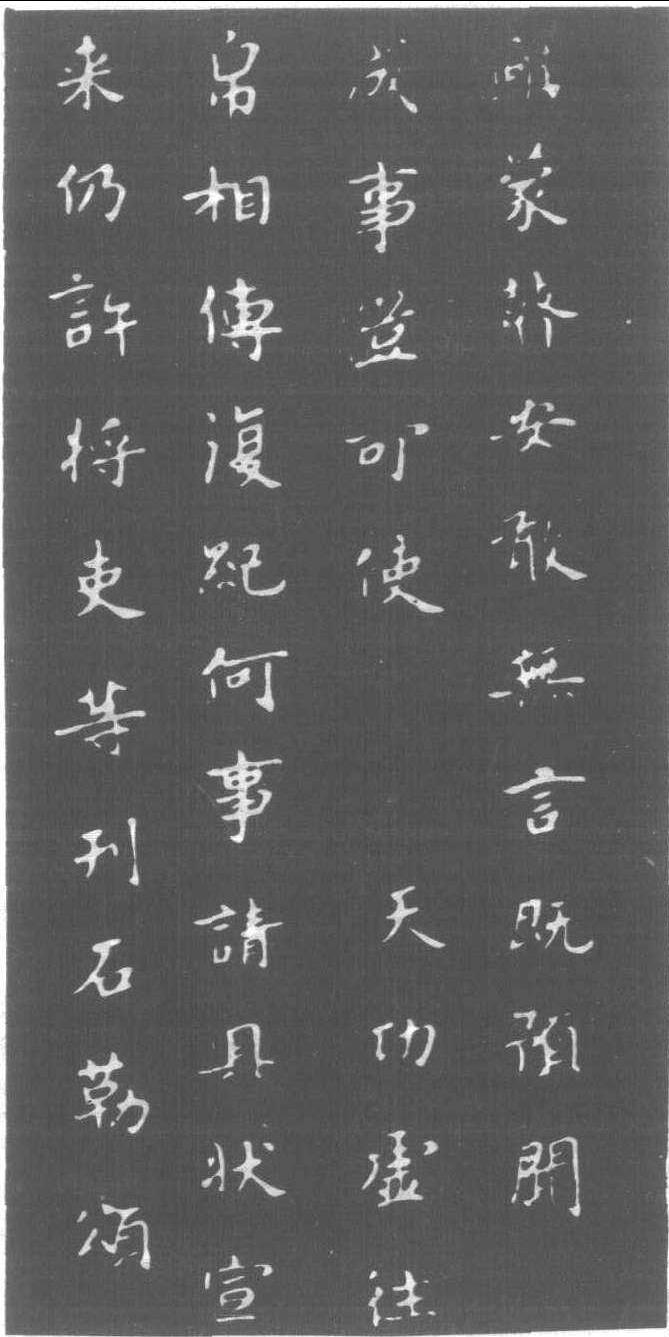 蒙安敢無言既預開
成事豈可使 天功虛往
帛相傳復紀何事請具狀宣
来仍許将吏等刊石勒頌